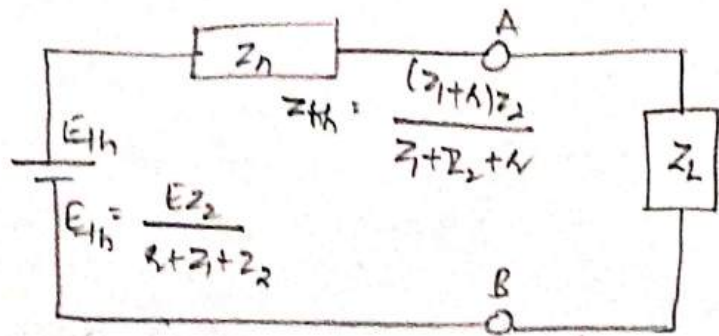 Zn
A
Zth = (Z1+r)Z2 / Z1+Z2+r
Eth
ZL
Eth = EZ2 / r+Z1+Z2
B